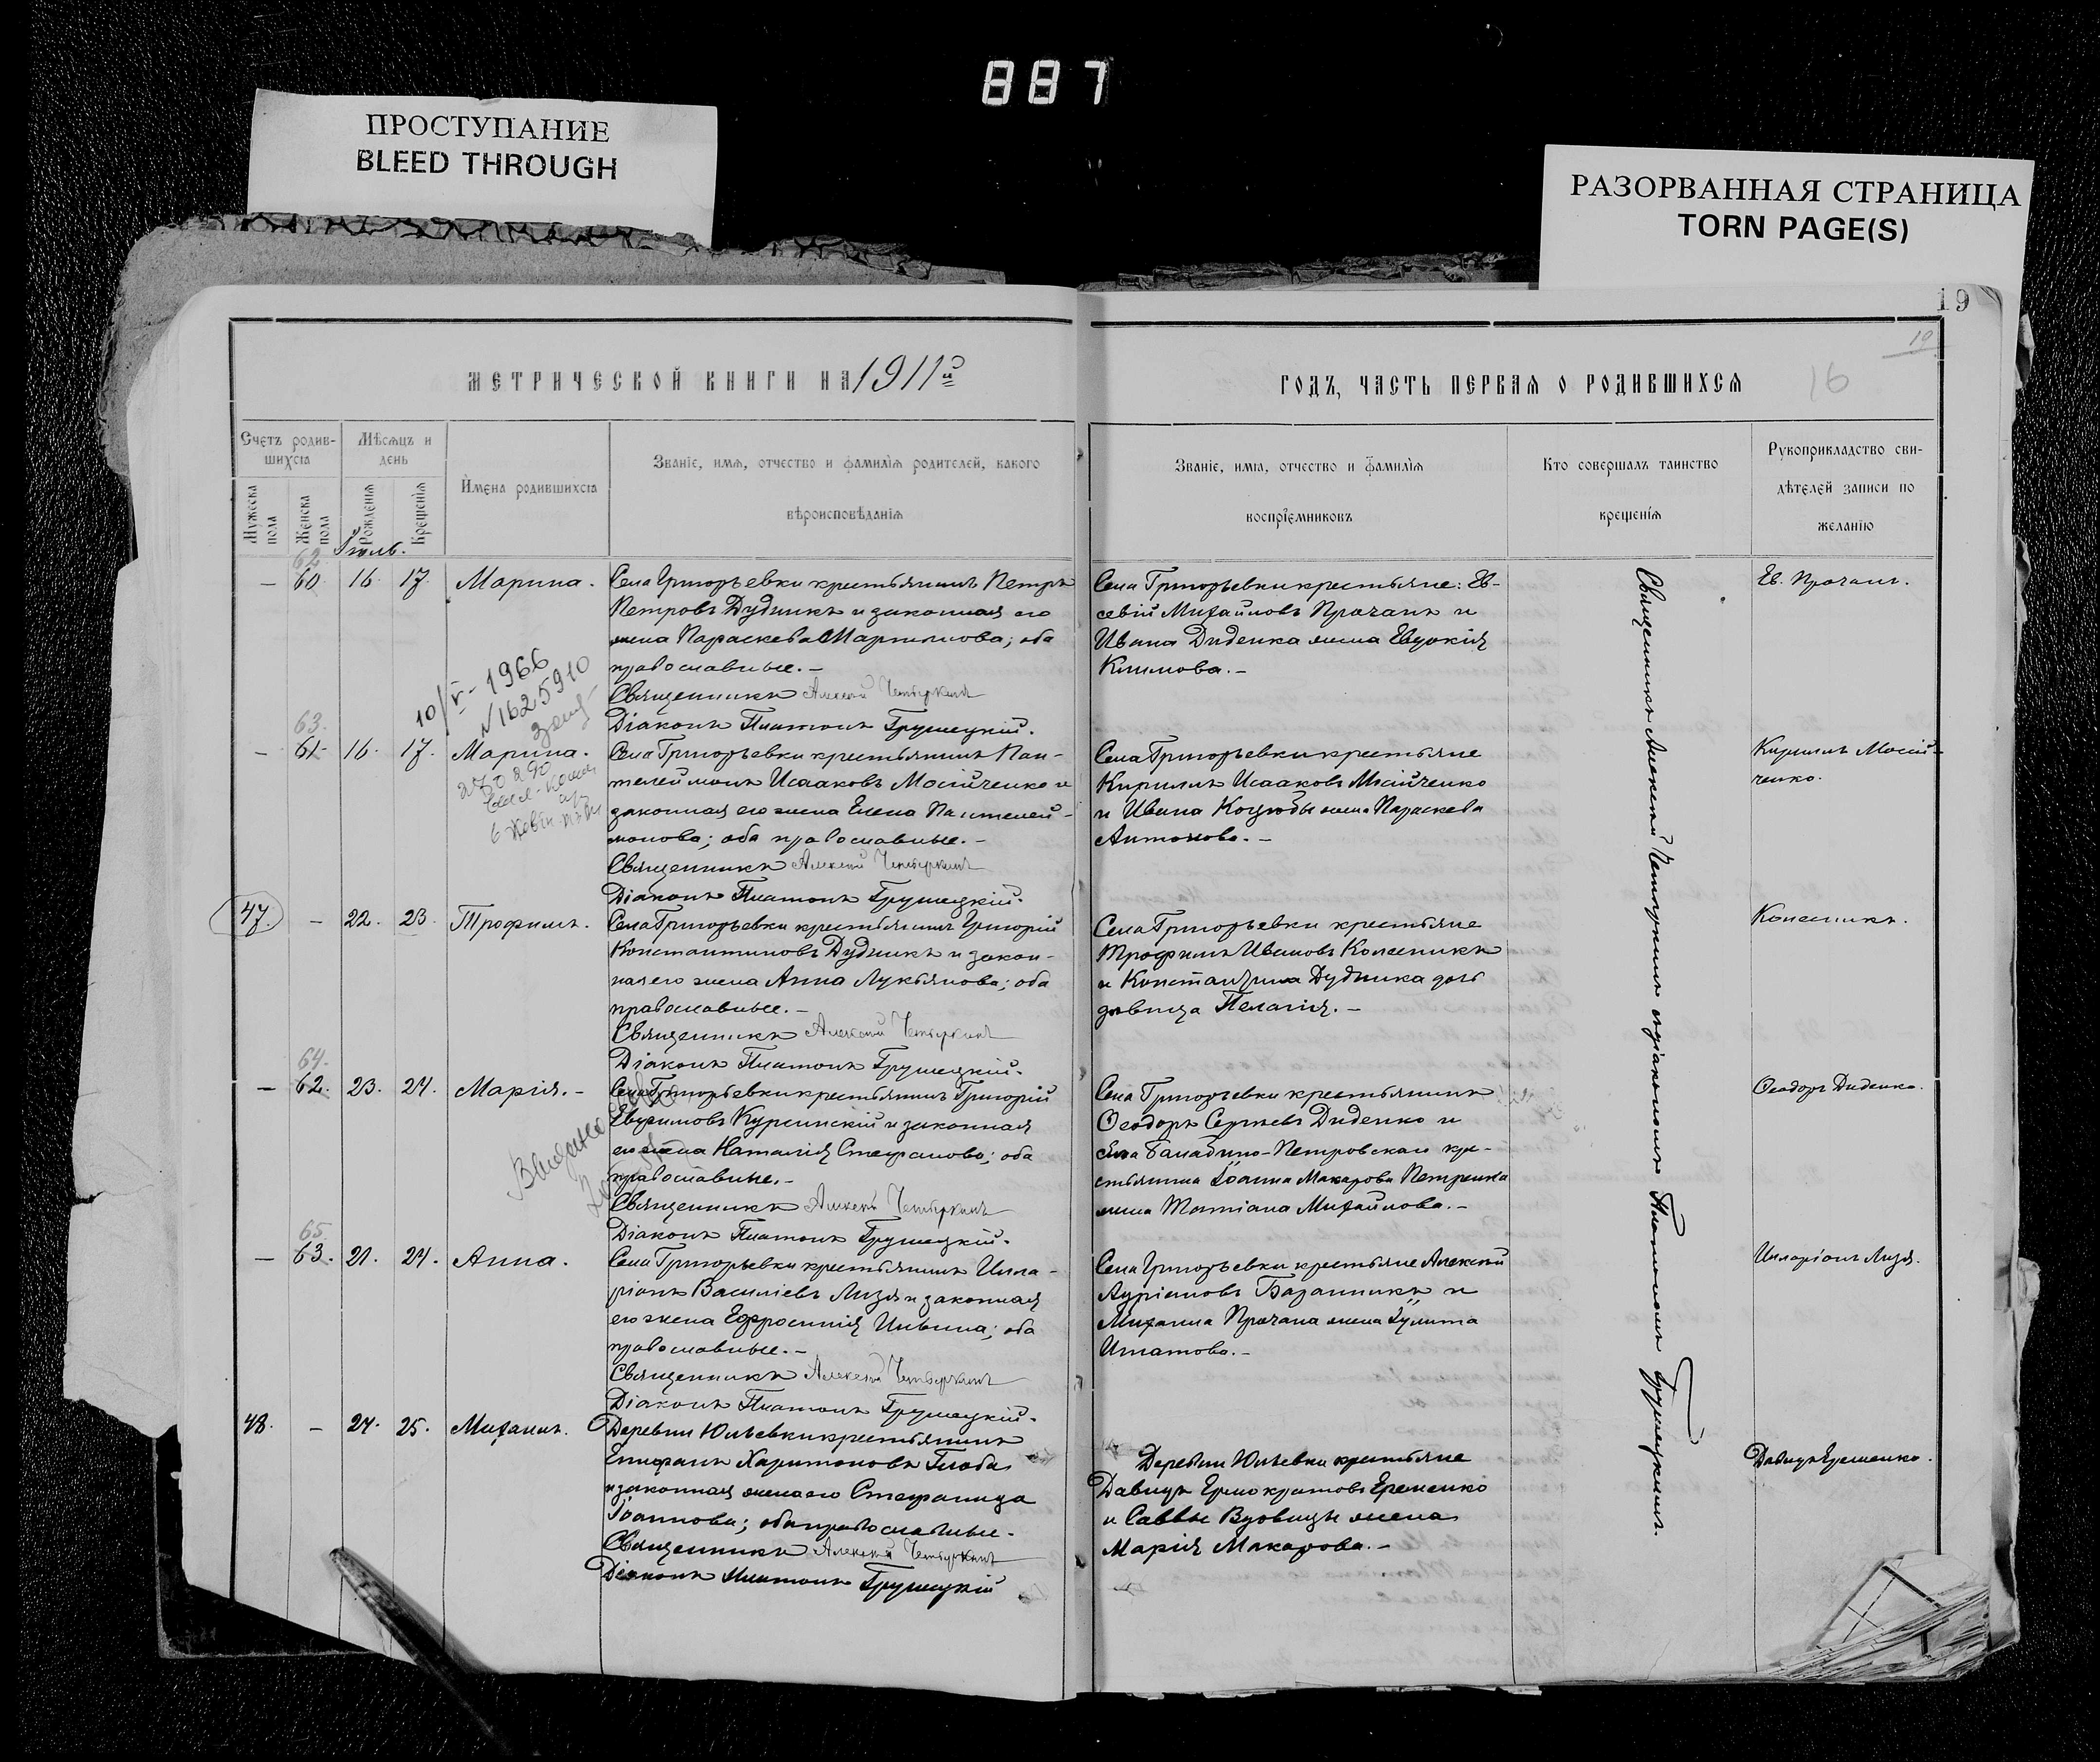 887
ПРОСТУПАНИЕ
BLEED THROUGH
РАЗОРВАННАЯ СТРАНИЦА
TORN PAGE(S)
19
19
16
МЕТРИЧЕСКОЙ КНИГИ НА 1911й
ГОДЪ, ЧАСТЬ ПЕРВАЯ О РОДИВШИХСЯ
Счетъ родив-
шихся
Мужеска пола
Женска пола
Мѣсяцъ и
день
Рожденія
Крещенія
Имена родившихся
Званіе, имя, отчество и фамилія родителей, какого
вѣроисповѣданія
Званіе, имя, отчество и фамилія
воспріемниковъ
Кто совершалъ таинство
крещенія
Рукоприкладство сви-
дѣтелей записи по
желанію
Іюль.
62
— 60. 16. 17. Марина.
Села Григорьевки крестьянинъ Петръ
Петровъ Дудникъ и законная его
жена Параскева Мартинова; оба
православные.—
Священникъ Алексѣй Четыркинъ
Діаконъ Платонъ Грушецкій.
Села Григорьевки крестьяне: Ев-
севій Михайловъ Прочанъ и
Ивана Диденка жена Евдокія
Климова.—
Ев. Прочанъ.
10/V - 1966
№ 1625910
63.
— 61. 16. 17. Марина.
Села Григорьевки крестьянинъ Пан-
телеймонъ Исааковъ Мосійченко и
законная его жена Елена Пантелей-
монова; оба православные.—
Священникъ Алексѣй Четыркинъ
Діаконъ Платонъ Грушецкій.
Села Григорьевки крестьяне
Кириллъ Исааковъ Мосійченко
и Ивана Коцюбы жена Параскева
Антонова.—
Кириллъ Мосій-
ченко.
47. — 22. 23. Трофимъ.
Села Григорьевки крестьянинъ Григорій
Константиновъ Дудникъ и закон-
ная его жена Анна Лукьянова; оба
православные.—
Священникъ Алексѣй Четыркинъ
Діаконъ Платонъ Грушецкій.
Села Григорьевки крестьяне
Трофимъ Ивановъ Колесникъ
и Константина Дудника дочь
дѣвица Пелагія.—
Колесникъ.
64.
— 62. 23. 24. Марія.—
Села Григорьевки крестьянинъ Григорій
Евфимовъ Курсинскій и законная
его жена Наталія Стефанова; оба
православные.—
Священникъ Алексѣй Четыркинъ
Діаконъ Платонъ Грушецкій.
Села Григорьевки крестьянинъ
Ѳеодоръ Сергѣевъ Диденко и
села Балабино-Петровскаго кре-
стьянина Іоанна Макарова Петренка
жена Татіана Михайлова.—
Ѳеодоръ Диденко.
65.
— 63. 21. 24. Анна.
Села Григорьевки крестьянинъ Илла-
ріонъ Василіевъ Лизя и законная
его жена Ефросинія Ильина; оба
православные.—
Священникъ Алексѣй Четыркинъ
Діаконъ Платонъ Грушецкій.
Села Григорьевки крестьяне Алексѣй
Адріановъ Баранникъ и
Михаила Прочана жена Іулита
Игнатова.—
Илларіонъ Лизя.
48. — 24. 25. Михаилъ.
Деревни Юльевки крестьянинъ
Епифанъ Харитоновъ Глоба
и законная жена его Стефанида
Іоаннова; оба православные.
Священникъ Алексѣй Четыркинъ
Діаконъ Платонъ Грушецкій
Деревни Юльевки крестьяне
Давидъ Ермократовъ Еременко
и Саввы Вдовицы жена
Марія Макарова.—
Давидъ Еременко.
Священникъ Алексѣй Четыркинъ съ діакономъ Платономъ Грушецкимъ.